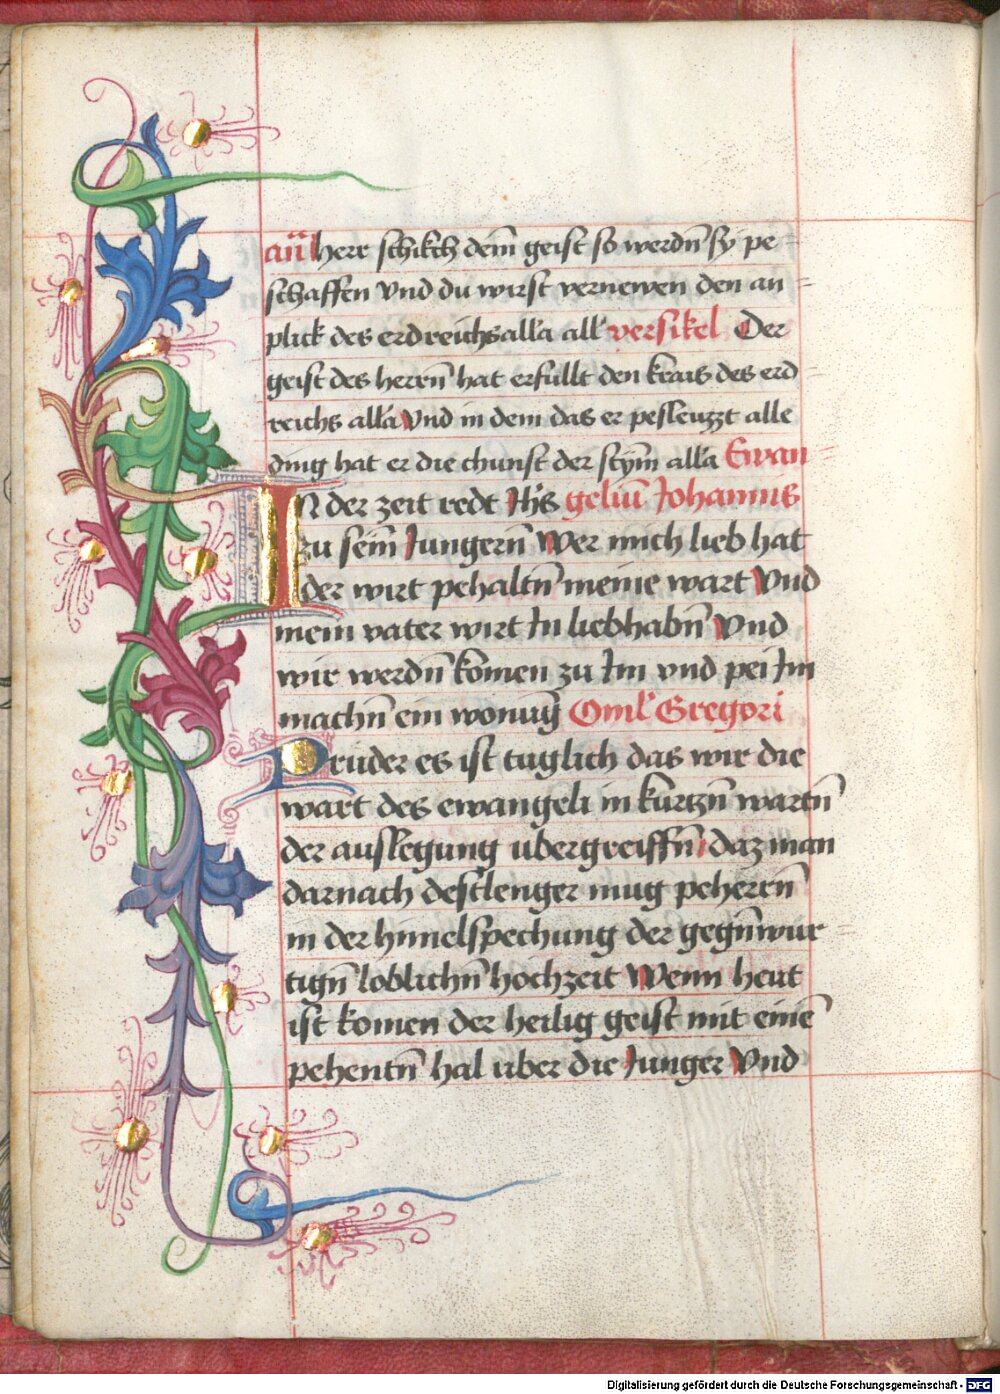 añ herr schikch deim̄ geist so werdn̄ sy pe=
schaffen vnd du wirst vernewen den an=
plick des erdreichs alla all' versikel Der
geist des herrn̄ hat erfullt den krais des erd=
reichs alla Vnd in dem das er pesleuzzt alle
ding hat er die chunst der stym̄ alla Ewan=
IN der zeit redt Jh's geliū Johannis
zu sein̄ Jungern̄ Wer mich lieb hat
der wirt pehaltn̄ meine wart Vnd
mein vater wirt Jn liebhabn̄ Vnd
wir werdn̄ komen zu Jm vnd pei Jm
machn̄ ein wonūg Oml' Gregori
Pruder es ist tuglich das wir die
wart des ewangeli in kurtzn̄ wartn̄
der auslegung ubergreiffn̄ daz man
darnach destlenger mug peherrn̄
in der himelspechung der gegn̄wur=
tign̄ loblichn̄ hochzeit Wenn heut
ist komen der heilig geist mit einē
pehentn̄ hal uber die Junger Vnd
Digitalisierung gefördert durch die Deutsche Forschungsgemeinschaft - DFG